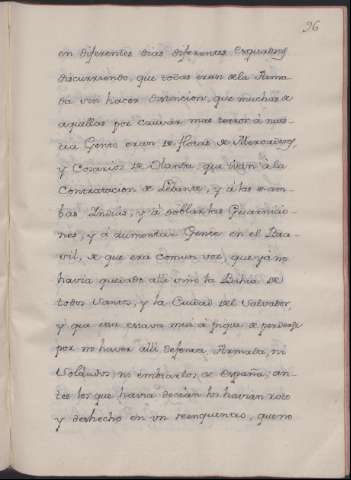 96
en diferentes dias diferentes Esquadras
discurriendo, que todas eran de la Arma-
da sin hacer distincion, que muchas de
aquellas por causar mas terror à nues-
tra Gente eran de flotas de Mercaderes,
y Cosarios de Olanda que ivan à la
Contratacion de Lebante, y à las am-
bas Indias, y à doblar las Guarnicio-
nes, y à aumentar Gente en el Bra-
sil, de que era comun voz, que yà no
havia quedado alli sino la Bahia de
todos Santos, y la Ciudad del Salvador,
y que esta estava mui à pique de perderse
por no haver alli defensa, Armada, ni
Soldados, ni embiarlos de España; an-
tes los que havia decian los havian roto
y deshecho en un reenquentro, que no